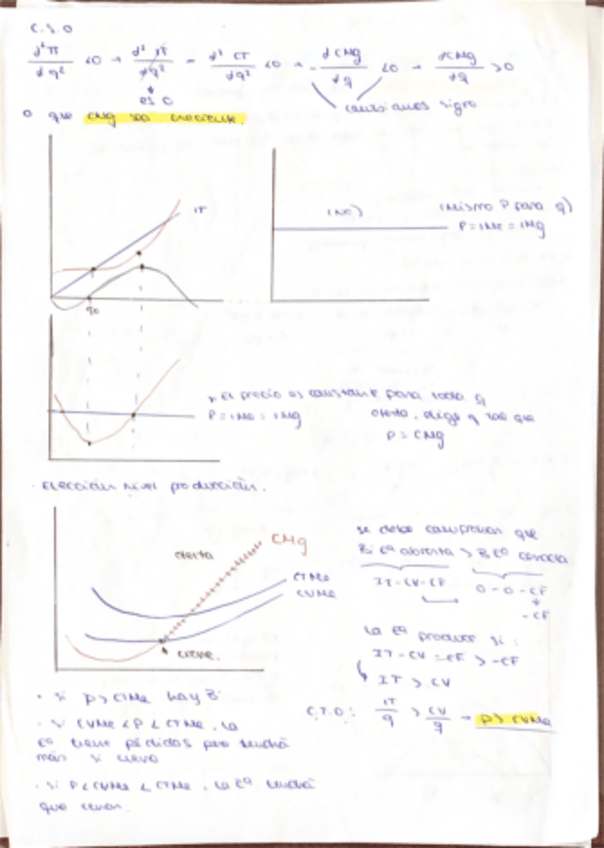 C.S.O
d²π/dq² <0 → d²IT/dq² - d²CT/dq² <0 → - dCMg/dq <0 → dCMg/dq >0
es 0
cambiamos signo
O que CMg sea creciente.
IT
(No)
(mismo P para q)
P = IMe = IMg
q₀
El precio es constante para toda q
P = IMe = IMg
oferta, elige q tal que
P = CMg
· Elección nivel producción.
oferta
CMg
CTMe
CVMe
cierre.
se debe comprobar que
B⁰ Cª abierta > B Cª cerrada
IT-CV-CF
0-0-CF
-CF
La Cª produce si:
IT-CV-CF > -CF
IT > CV
C.T.O: IT/q > CV/q → P > CVMe
· Si P > CTMe hay B⁰
· Si CVMe < P < CTMe, la
Cª tiene pérdidas pero tendrá
más si cierra
· Si P < CVMe < CTMe, la Cª tendrá
que cerrar.